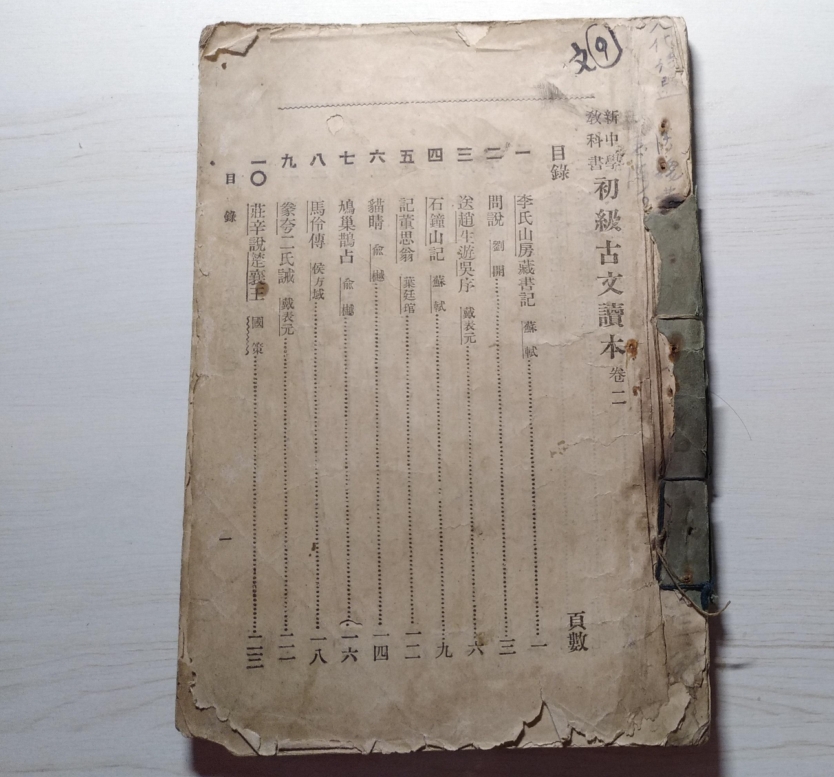 文 9
新中學教科書 初級古文讀本 卷二
目錄 頁數
一 李氏山房藏書記 蘇軾 一
二 問說 劉開 三
三 送趙生遊吳序 戴表元 六
四 石鐘山記 蘇軾 九
五 記董思翁 葉廷琯 一二
六 貓晴 俞樾 一四
七 鳩巢鵲占 俞樾 一六
八 馬伶傳 侯方域 一八
九 豢夸二氏誡 戴表元 二一
一〇 莊辛說楚襄王 國策 二三
目錄 一